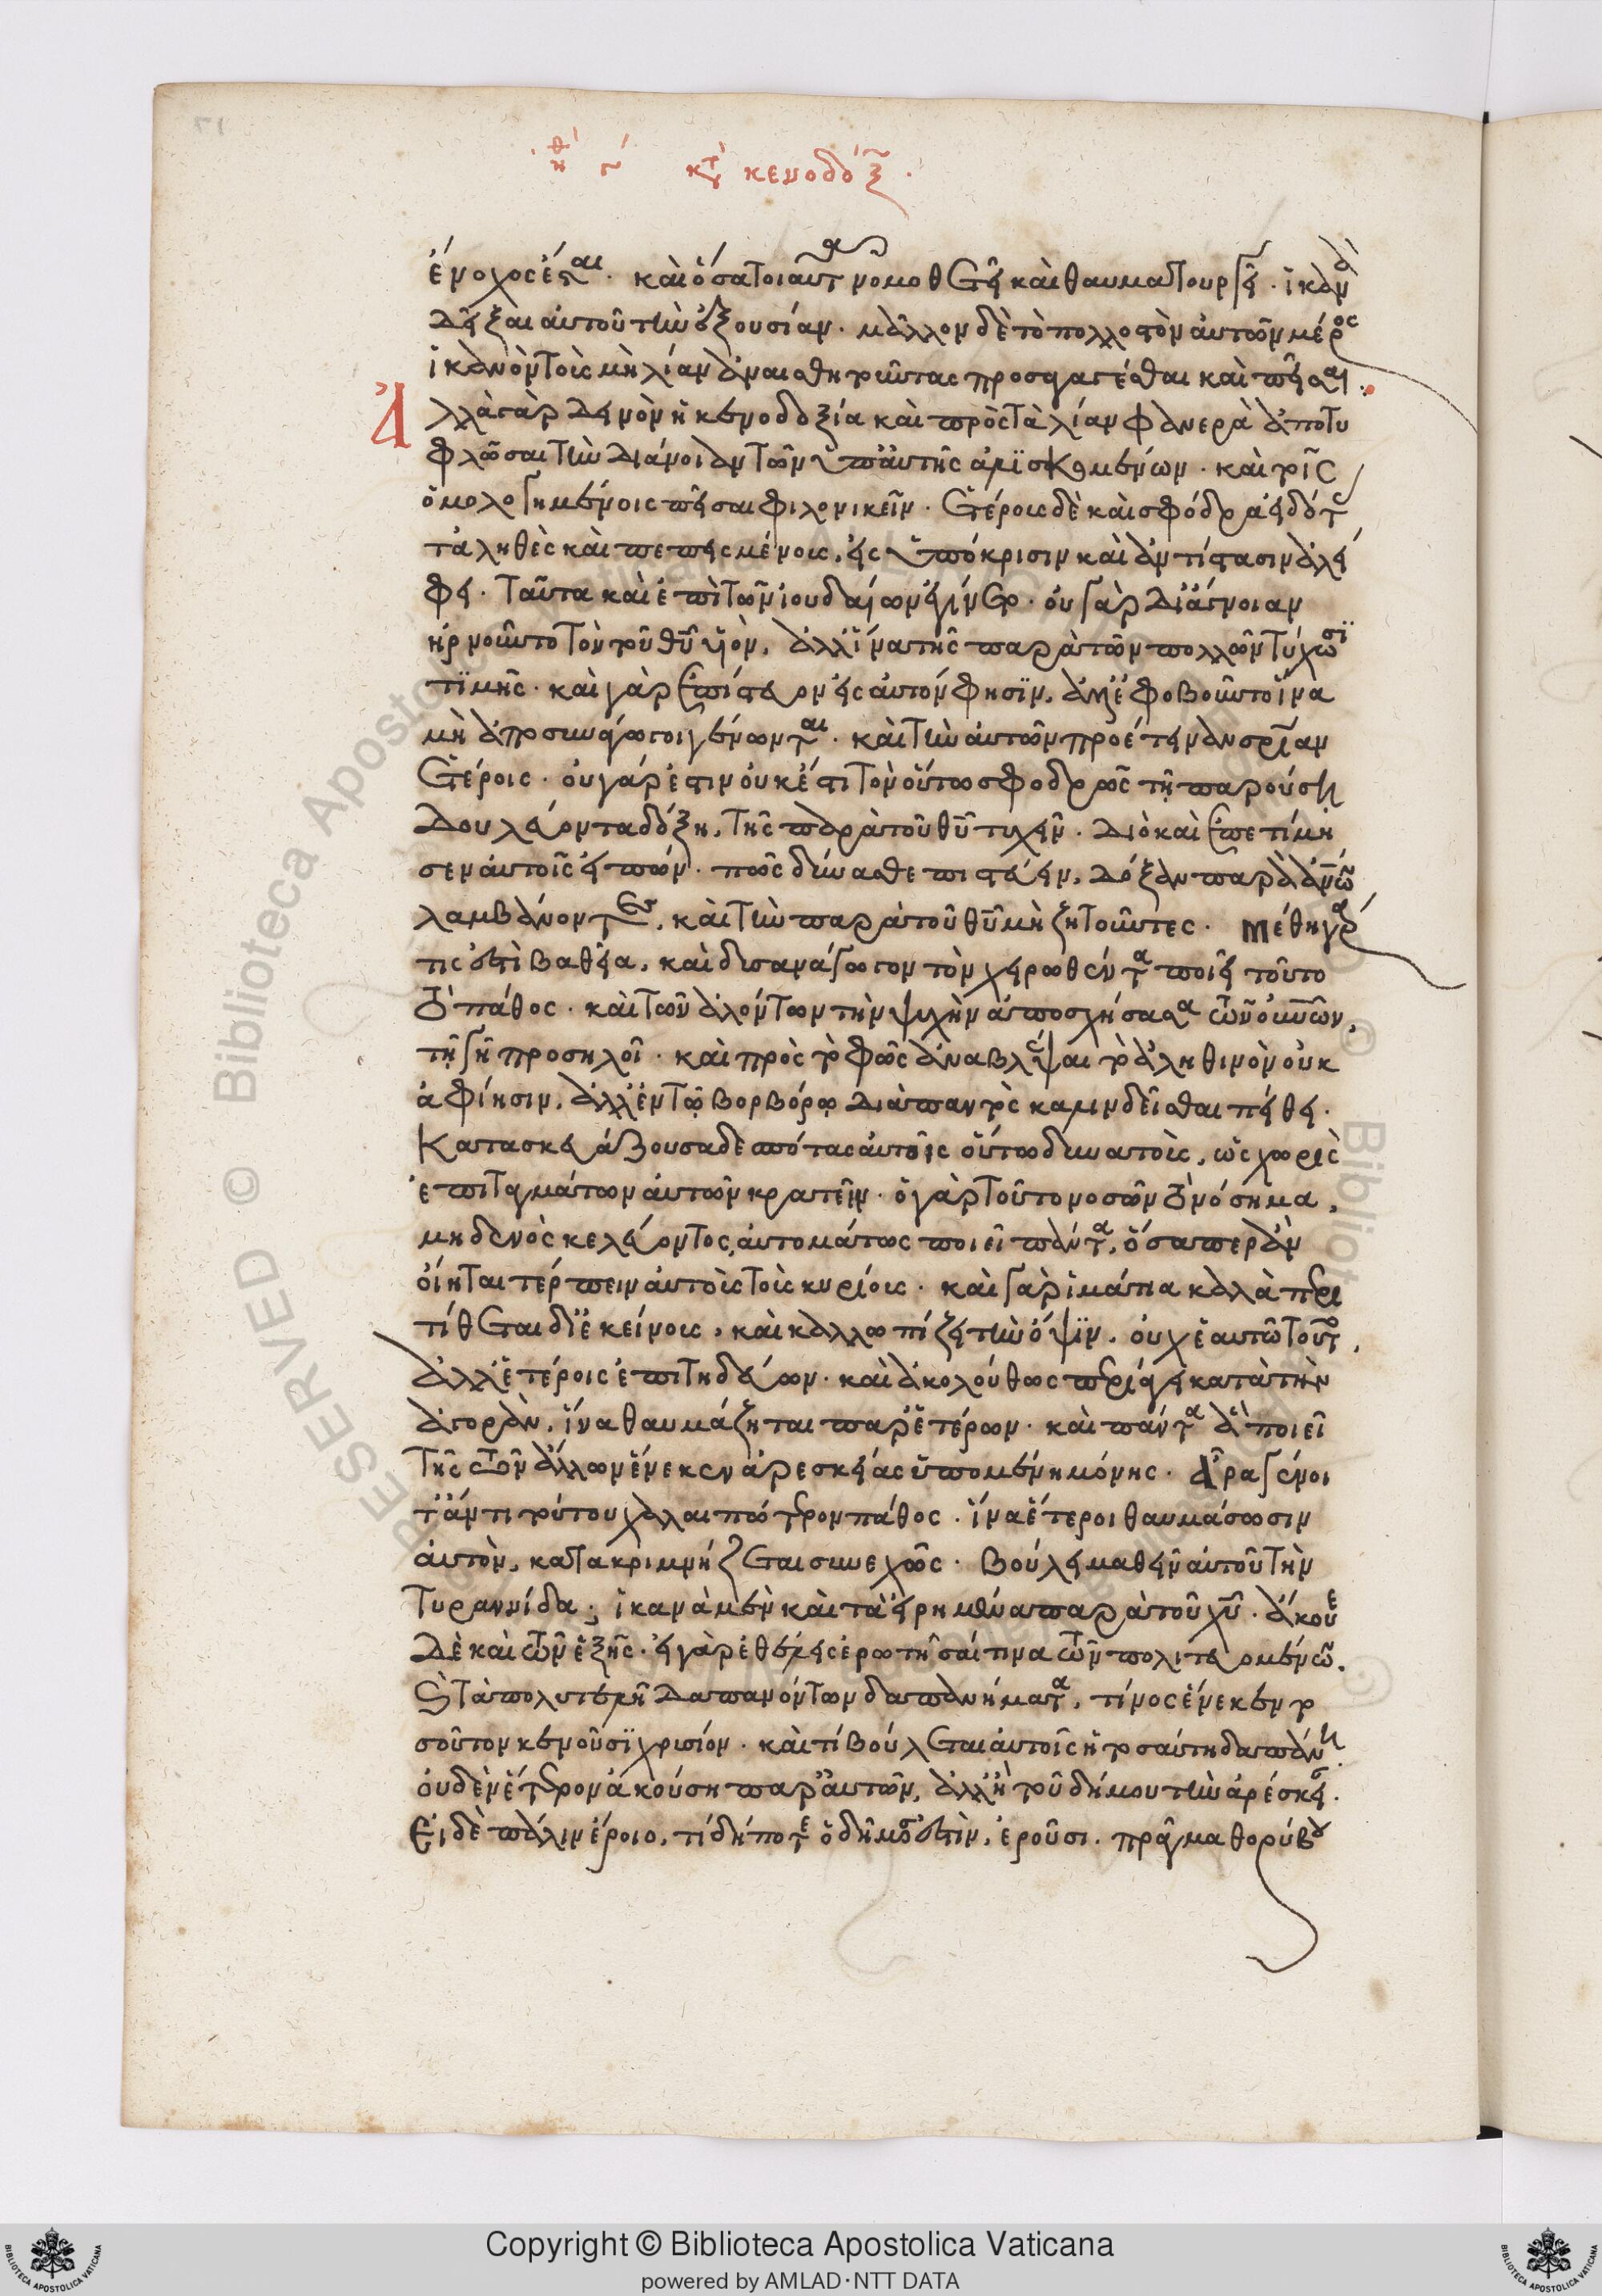 κατὰ κενοδοξ
ἔνοχος ἔσται. καὶ ὅσα τοιαῦτα νομοθετεῖ καὶ θαυματουργεῖ. ἱκανὰ
δεῖξαι αὐτοῦ τὴν ἐξουσίαν. μᾶλλον δὲ τὸ πολλοστὸν αὐτῶν μέρος
ἱκανὸν τοὺς μὴ λίαν ἀναισθητοῦντας προσαγαγέσθαι καὶ πεῖσαι.
Ἀλλὰ γὰρ δεινὸν ἡ κενοδοξία καὶ πρὸς τὰ λίαν φανερὰ ἀποτυ
φλῶσαι τὴν διάνοιαν τῶν ὑπ' αὐτῆς ἁλισκομένων. καὶ τοῖς
ὁμολογημένοις πεῖσαι φιλονικεῖν. ἑτέροις δὲ καὶ σφόδρα εἰδότας
τἀληθὲς καὶ πεπεισμένοις, εἰς ὑπόκρισιν καὶ ἀντίστασιν ἀλεί
φει. ταῦτα καὶ ἐπὶ τῶν ἰουδαίων ἐγίνετο. οὐ γὰρ δι' ἄγνοιαν
ἠρνοῦντο τὸν τοῦ θυ υἱόν, ἀλλ' ἵνα τῆς παρὰ τῶν πολλῶν τύχωσι
τιμῆς. καὶ γὰρ ἐπίστευον εἰς αὐτόν φησιν, ἀλλ' ἐφοβοῦντο ἵνα
μὴ ἀποσυνάγωγοι γένωνται. καὶ τὴν αὐτῶν προέτειναν σρίαν
ἑτέροις. οὐ γὰρ ἔστιν οὐκ ἔστι τὸν οὕτω σφοδρῶς τῇ παρούσῃ
δουλεύοντα δόξῃ, τῆς παρὰ τοῦ θυ τυχεῖν. διὸ καὶ ἐπετίμη
σεν αὐτοῖς εἰπών. πῶς δύνασθε πιστεύειν, δόξαν παρὰ ἀνων
λαμβάνοντες, καὶ τὴν παρὰ τοῦ θυ μὴ ζητοῦντες. Μέθη γάρ
τις ἐστὶ βαθεῖα, καὶ δυσανάγωγον τὸν χειρωθέντα ποιεῖ τοῦτο
τὸ πάθος. καὶ τῶν ἁλόντων τὴν ψυχὴν ἀποσχίσασα τῶν οὐνῶν,
τῇ γῇ προσηλοῖ. καὶ πρὸς τὸ φῶς ἀναβλέψαι τὸ ἀληθινὸν οὐκ
ἀφίησιν, ἀλλ' ἐν τῷ βορβόρῳ διὰ παντὸς καλινδεῖσθαι πείθει.
Κατασκευάζουσα δεσπότας αὐτοῖς οὕτω δυνατοὺς, ὡς χωρὶς
ἐπιταγμάτων αὐτῶν κρατεῖν. ὁ γὰρ τοῦτο νοσῶν τὸ νόσημα,
μηδενὸς κελεύοντος, αὐτομάτως ποιεῖ πάντα, ὅσαπερ ἂν
οἴηται τέρπειν αὐτοὺς τοὺς κυρίους. καὶ γὰρ ἱμάτια καλὰ περι
τίθεται δι' ἐκείνους, καὶ καλλωπίζει τὴν ὄψιν, οὐχ ἑαυτῷ τοῦτο,
ἀλλ' ἑτέροις ἐπιτηδεύων. καὶ ἀκολούθως περιάγει κατὰ τὴν
ἀγορὰν, ἵνα θαυμάζηται παρ' ἑτέρων. καὶ πάντα ἃ ποιεῖ
τῆς τῶν ἄλλων ἕνεκεν ἀρεσκείας ὑπομένει μόνης. Ἆρα γένοι
τ' ἄν τι τούτου χαλεπώτερον πάθος. ἵνα ἕτεροι θαυμάσωσιν
αὐτὸν, κατακρημνίζεται συνεχῶς. Βούλει μαθεῖν αὐτοῦ τὴν
τυραννίδα; ἱκανὰ μὲν καὶ τὰ εἰρημένα παρὰ τοῦ χυ. ἄκουε
δὲ καὶ τῶν ἑξῆς. εἰ γὰρ ἐθέλεις ἐρωτῆσαί τινα τῶν πολιτευομένων,
καὶ τὰ πολυτελῆ δαπανόντων δαπανήματα, τίνος ἕνεκεν το
σοῦτον κενοῦσι χρυσίον. καὶ τί βούλεται αὐτοῖς ἡ τοσαύτη δαπάνη.
οὐδὲν ἕτερον ἀκούσῃ παρ' αὐτῶν, ἀλλ' ἢ τοῦ δήμου τὴν ἀρέσκειαν.
Εἰ δὲ πάλιν ἔροιο, τί δήποτε ὁ δῆμός ἐστιν, ἐροῦσι. πρᾶγμα θορύβου
Copyright © Biblioteca Apostolica Vaticana
powered by AMLAD·NTT DATA